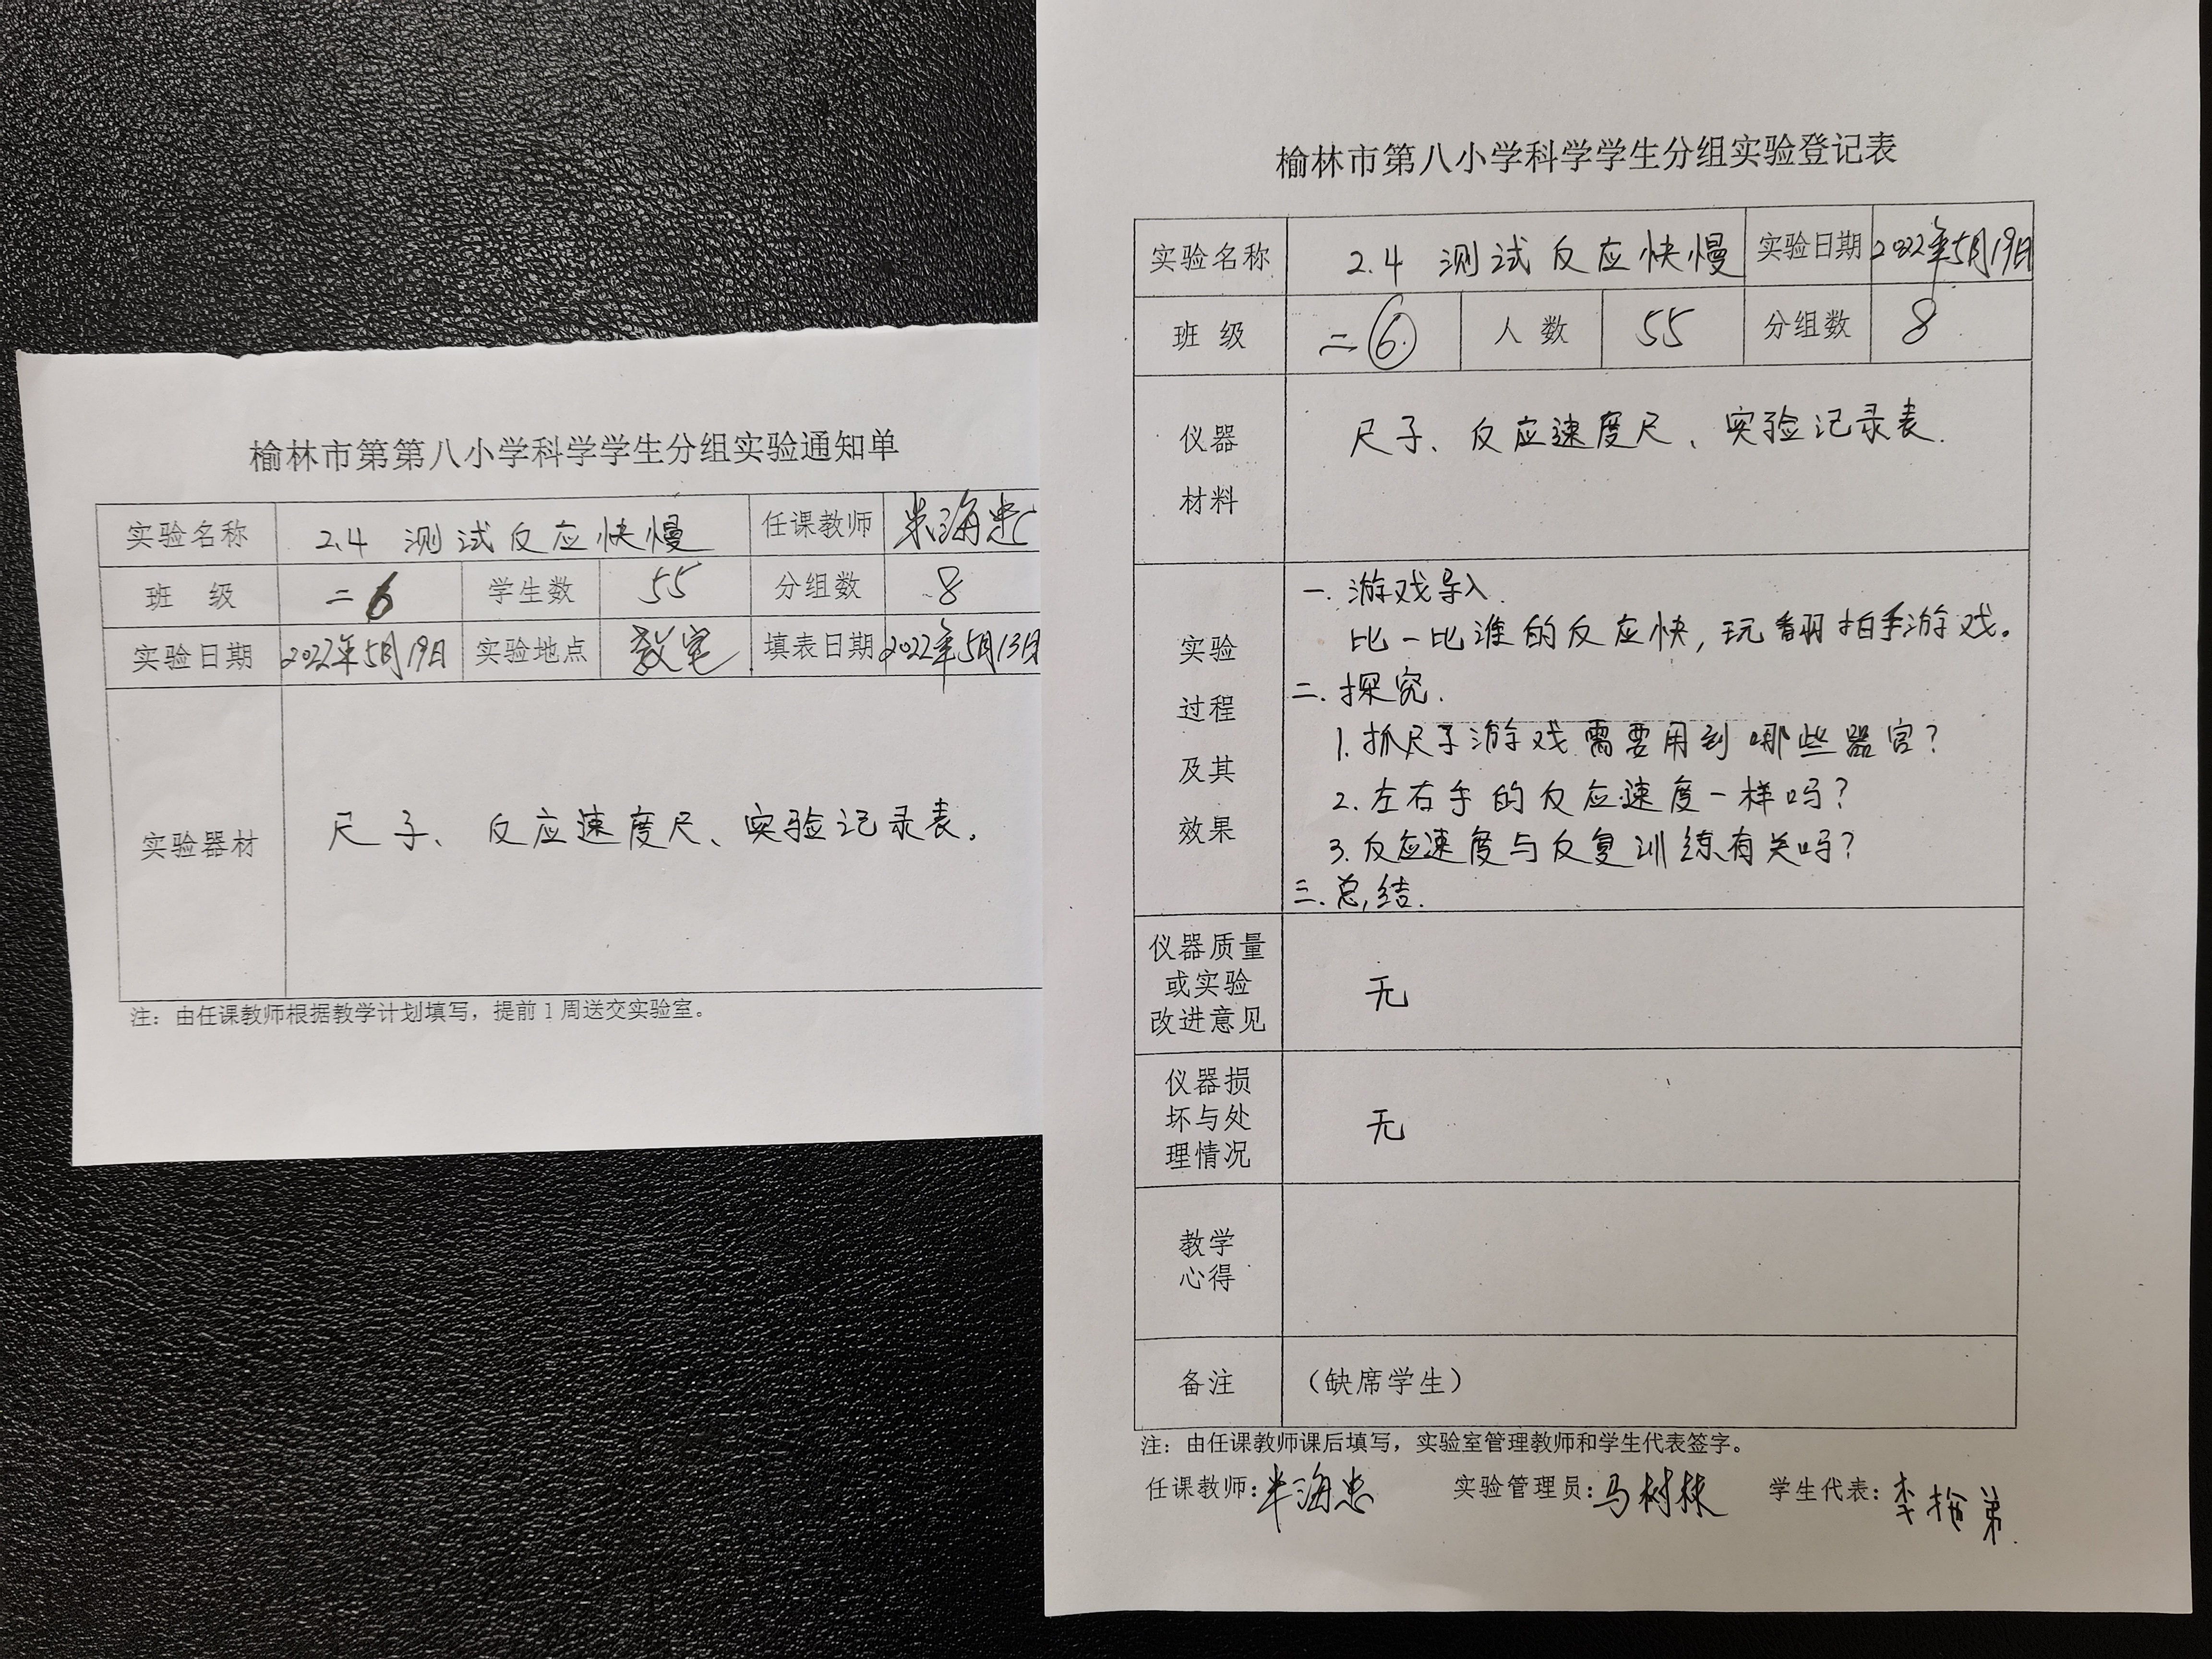 榆林市第第八小学科学学生分组实验通知单
实验名称 2.4 测试反应快慢 任课教师 米海忠
班 级 二6 学生数 55 分组数 8
实验日期 2022年5月19日 实验地点 教室 填表日期 2022年5月13日
实验器材 尺子、反应速度尺、实验记录表。
注：由任课教师根据教学计划填写，提前1周送交实验室。
榆林市第八小学科学学生分组实验登记表
实验名称 2.4 测试反应快慢 实验日期 2022年5月19日
班 级 二⑥ 人 数 55 分组数 8
仪器
材料
尺子、反应速度尺、实验记录表.
实验
过程
及其
效果
一. 游戏导入.
比一比谁的反应快，玩翻拍手游戏。
二. 探究.
1. 抓尺子游戏需要用到哪些器官？
2. 左右手的反应速度一样吗？
3. 反应速度与反复训练有关吗？
三. 总结.
仪器质量
或实验
改进意见
无
仪器损
坏与处
理情况
无
教学
心得
备注 （缺席学生）
注：由任课教师课后填写，实验室管理教师和学生代表签字。
任课教师：米海忠 实验管理员：马树林 学生代表：李